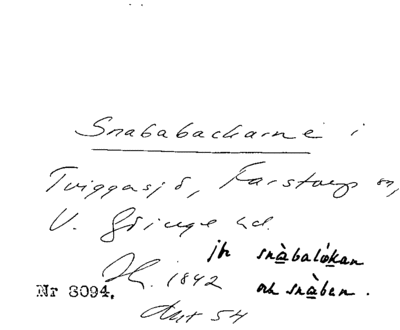 Snababackarne i
Tviggasjö, Farstorp sn,
V. Göinge hd.
jfr snàbalókan
1842 och snàben.
Nr 3094.
54